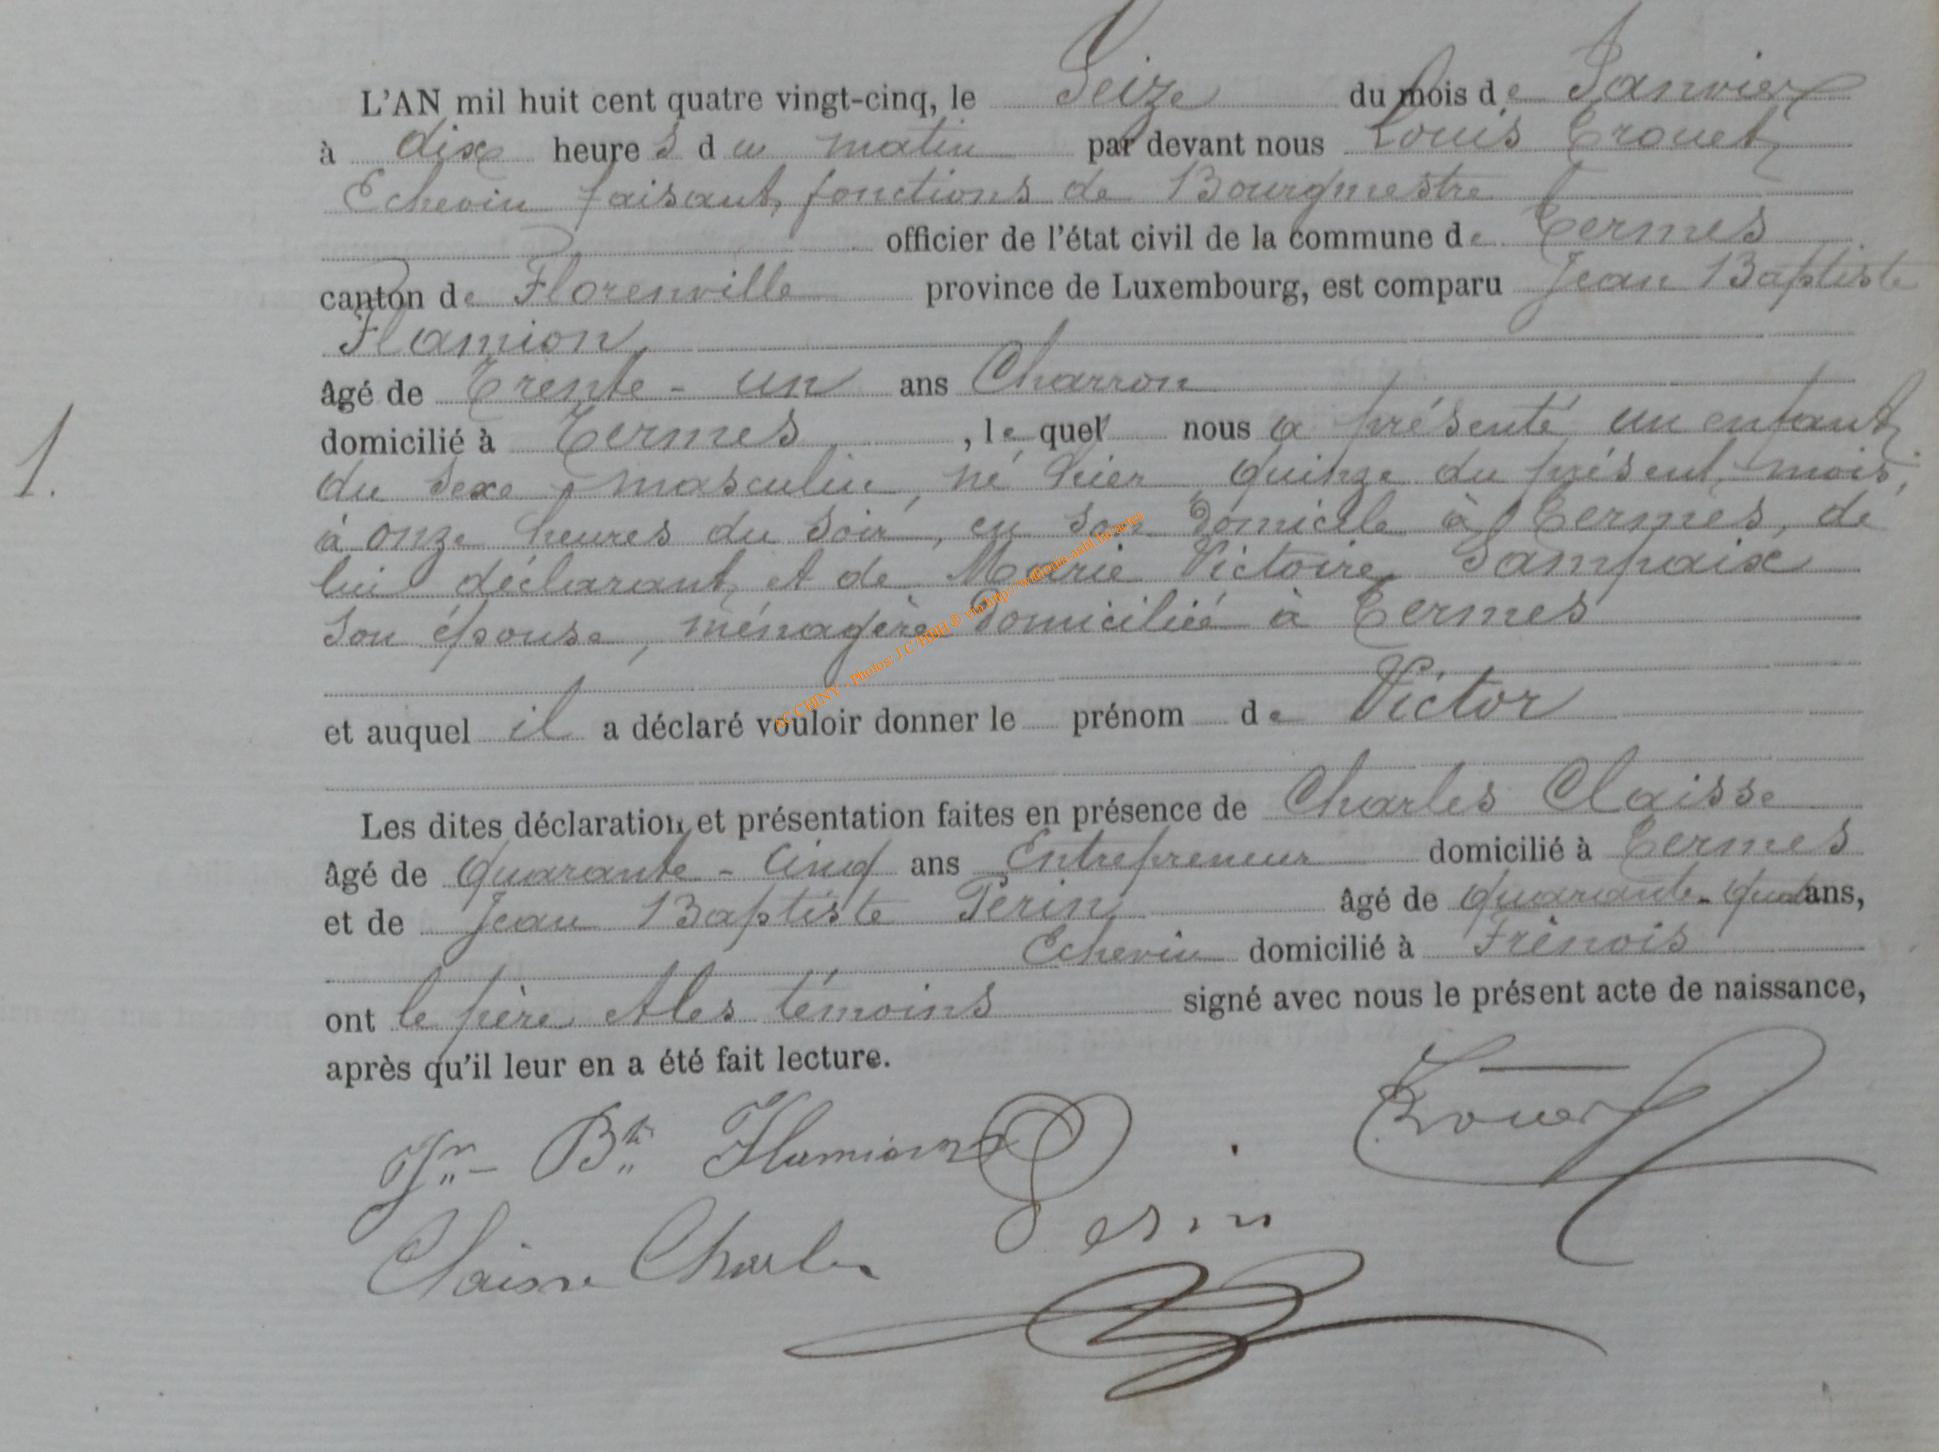 L'AN mil huit cent quatre vingt-cinq, le Seize du mois de Janvier
à dix heures du matin par devant nous Louis Trouet
Echevin faisant fonctions de Bourgmestre
officier de l'état civil de la commune de Termes
canton de Florenville province de Luxembourg, est comparu Jean Baptiste
Flamion
âgé de Trente-un ans Charron
domicilié à Termes, le quel nous a présenté un enfant
1. du sexe masculin, né hier quinze du présent mois,
à onze heures du soir, en son domicile à Termes, de
lui déclarant et de Marie Victoire Sampaix
son épouse, ménagère domiciliée à Termes
et auquel il a déclaré vouloir donner le prénom de Victor
Les dites déclaration et présentation faites en présence de Charles Claisse
âgé de quarante-cinq ans Entrepreneur domicilié à Termes
et de Jean Baptiste Perin âgé de quarante-quatre ans,
Echevin domicilié à Frénois
ont le père et les témoins signé avec nous le présent acte de naissance,
après qu'il leur en a été fait lecture.
Jn- Bte Flamion Trouet
Claisse Charles Perin